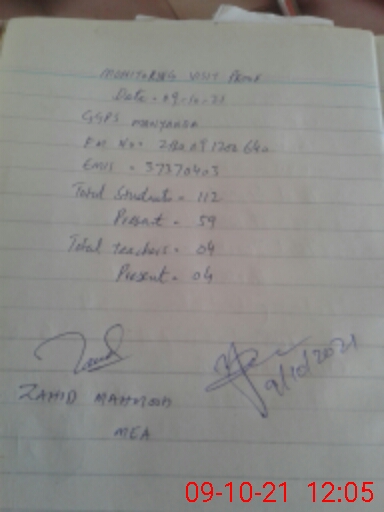 MONITORING VISIT PROOF
Date - 09-10-21
GGPS MANYAARA
EMIS - 37370403
Total Students - 112
Present - 59
Total teachers - 04
Present - 04
9/10/2021
ZAHID MAHMOOD
MEA
09-10-21 12:05